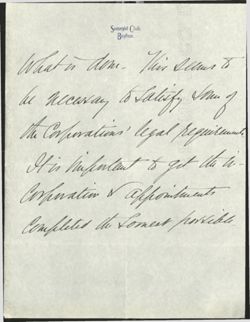 Somerset Club
Boston
What is done. This seems to
be necessary to satisfy some of
the Corporations' legal requirements.
It is important to get the in-
corporation & appointments
completed the soonest possible